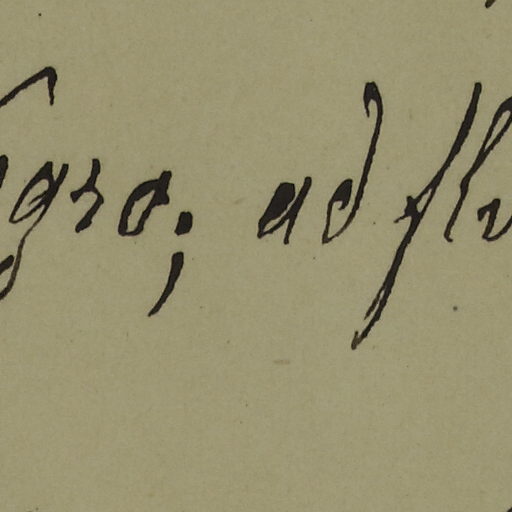 gro; ad flu